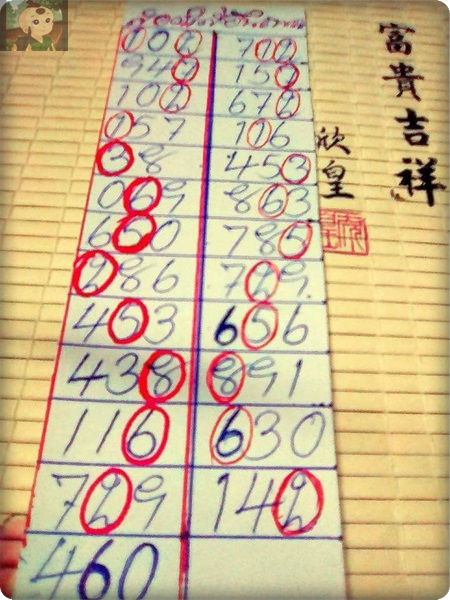 102 702
942 152
102 672
157 106
38 453
069 863
650 785
286 729
453 656
438 891
116 630
729 142
460
富貴吉祥
欣皇